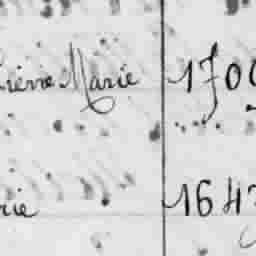 Pierre Marie 1700
rie 1643